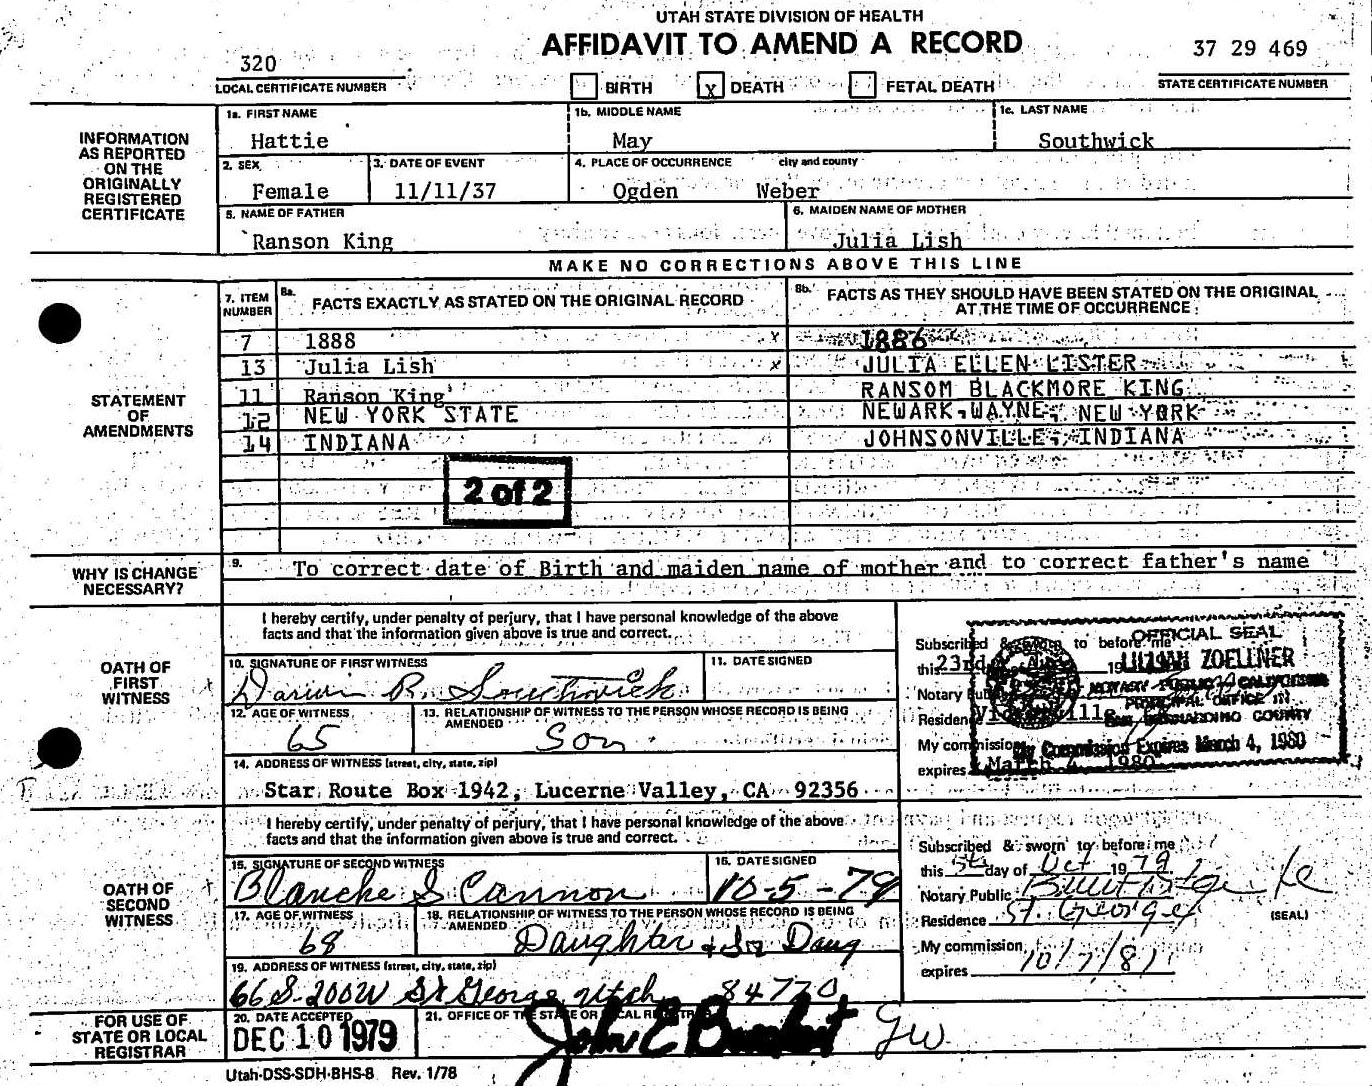 UTAH STATE DIVISION OF HEALTH
AFFIDAVIT TO AMEND A RECORD
320
LOCAL CERTIFICATE NUMBER
BIRTH x DEATH FETAL DEATH
37 29 469
STATE CERTIFICATE NUMBER
INFORMATION
AS REPORTED
ON THE
ORIGINALLY
REGISTERED
CERTIFICATE
1a. FIRST NAME 1b. MIDDLE NAME 1c. LAST NAME
Hattie May Southwick
2. SEX 3. DATE OF EVENT 4. PLACE OF OCCURRENCE city and county
Female 11/11/37 Ogden Weber
5. NAME OF FATHER 6. MAIDEN NAME OF MOTHER
Ranson King Julia Lish
MAKE NO CORRECTIONS ABOVE THIS LINE
STATEMENT
OF
AMENDMENTS
7. ITEM
NUMBER
8a. FACTS EXACTLY AS STATED ON THE ORIGINAL RECORD
8b. FACTS AS THEY SHOULD HAVE BEEN STATED ON THE ORIGINAL
AT THE TIME OF OCCURRENCE
7 1888 x 1886
13 Julia Lish x JULIA ELLEN LISTER
11 Ranson King RANSOM BLACKMORE KING
12 NEW YORK STATE NEWARK, WAYNE, NEW YORK
14 INDIANA JOHNSONVILLE, INDIANA
2 of 2
WHY IS CHANGE
NECESSARY?
9. To correct date of Birth and maiden name of mother and to correct father's name
OATH OF
FIRST
WITNESS
I hereby certify, under penalty of perjury, that I have personal knowledge of the above
facts and that the information given above is true and correct.
10. SIGNATURE OF FIRST WITNESS 11. DATE SIGNED
Darwin R. Southwick
12. AGE OF WITNESS 13. RELATIONSHIP OF WITNESS TO THE PERSON WHOSE RECORD IS BEING
AMENDED
65 Son
14. ADDRESS OF WITNESS (street, city, state, zip)
Star Route Box 1942, Lucerne Valley, CA 92356
Subscribed & sworn to before me
this 23rd
Notary Public
Residence
My commission
expires March 4, 1980
OFFICIAL SEAL
LILLIAN ZOELLNER
NOTARY PUBLIC CALIFORNIA
PRINCIPAL OFFICE IN
SAN BERNARDINO COUNTY
My Commission Expires March 4, 1980
OATH OF
SECOND
WITNESS
I hereby certify, under penalty of perjury, that I have personal knowledge of the above
facts and that the information given above is true and correct.
15. SIGNATURE OF SECOND WITNESS 16. DATE SIGNED
Blanche S Cannon 10-5-79
17. AGE OF WITNESS 18. RELATIONSHIP OF WITNESS TO THE PERSON WHOSE RECORD IS BEING
AMENDED
68 Daughter
19. ADDRESS OF WITNESS (street, city, state, zip)
66 S-200W St George Utah 84770
Subscribed & sworn to before me
this 5th day of Oct 1979
Notary Public
Residence St. George
(SEAL)
My commission
expires 10/7/81
FOR USE OF
STATE OR LOCAL
REGISTRAR
20. DATE ACCEPTED
DEC 10 1979
21. OFFICE OF THE STATE OR LOCAL REGISTRAR
John E Brockert
Utah-DSS-SDH-BHS-8 Rev. 1/78